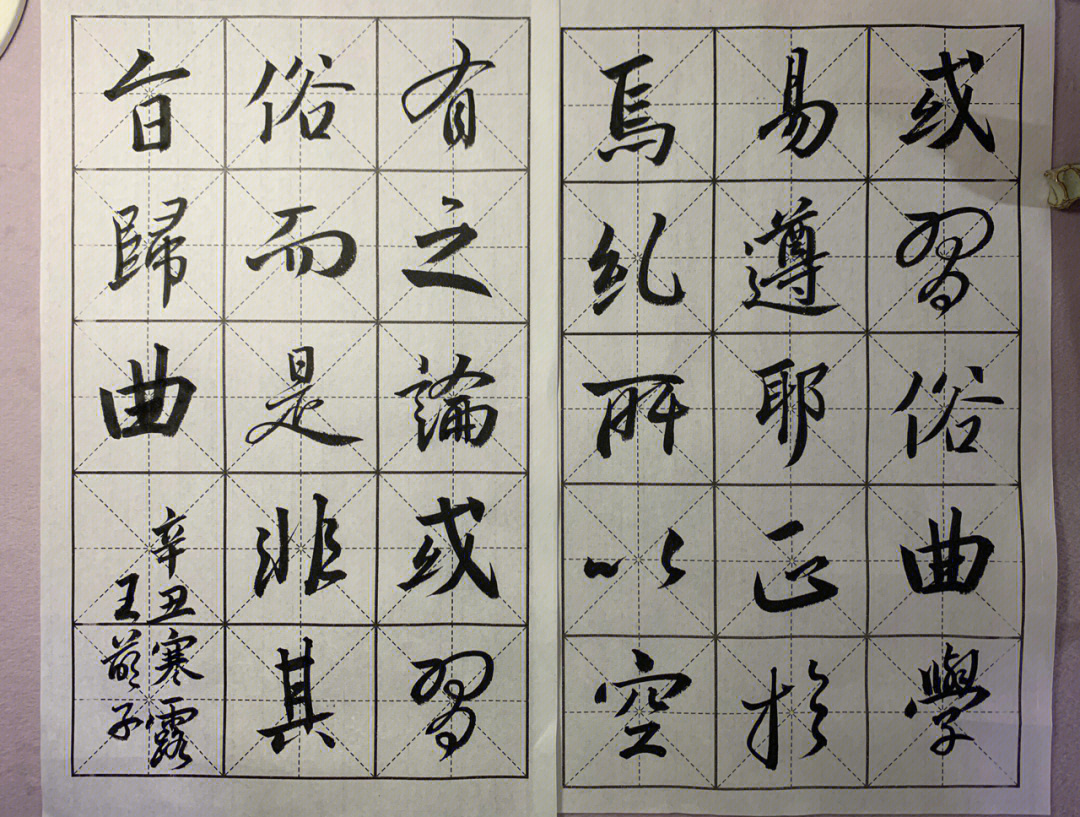 或習俗曲學
易遵耶正於
焉糺所以空
有之論或習
俗而是非其
旨歸曲
辛丑寒露
王萌子